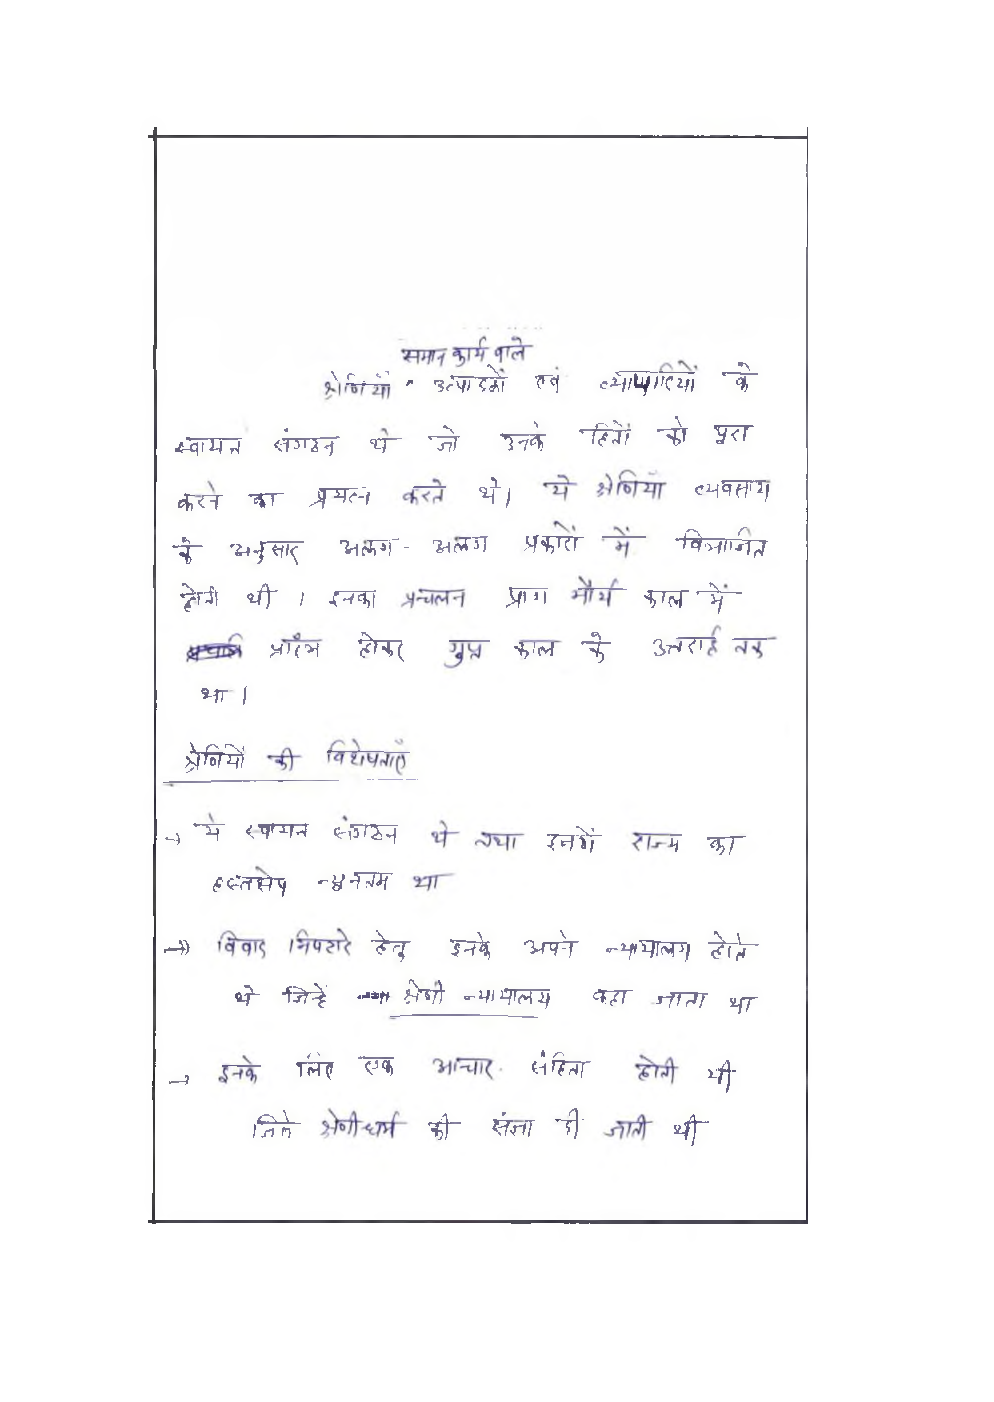 समान कार्य वाले
श्रेणियाँ उत्पादकों एवं व्यापारियों के
स्वायत्त संगठन थे जो उनके हितों को पूरा
करने का प्रयत्न करते थे। ये श्रेणियाँ व्यवसाय
के अनुसार अलग - अलग प्रकारों में विभाजित
होती थी । इनका प्रचलन प्राग मौर्य काल में
प्रारंभ होकर गुप्त काल के उत्तरार्द्ध तक
था ।
श्रेणियों की विशेषताएँ
→ ये स्वायत्त संगठन थे तथा इनमें राज्य का
हस्तक्षेप न्यूनतम था
→ विवाद निपटारे हेतु इनके अपने न्यायालय होते
थे जिन्हें श्रेणी न्यायालय कहा जाता था
→ इनके लिए एक आचार संहिता होती थी
जिसे श्रेणीधर्म की संज्ञा दी जाती थी